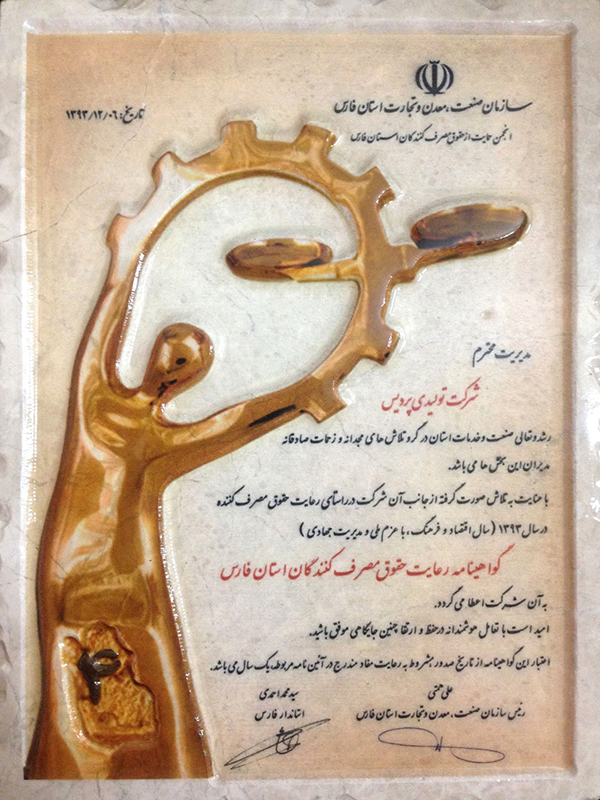 سازمان صنعت، معدن و تجارت استان فارس
تاریخ: ۱۳۹۳/۱۲/۰۶
انجمن حمایت از حقوق مصرف کنندگان استان فارس
مدیریت محترم
شرکت تولیدی پردیس
رشد و تعالی صنعت و خدمات استان در گرو تلاش های مجدانه و زحمات صادقانه
مدیران این بخش ها می باشد.
با عنایت به تلاش صورت گرفته از جانب آن شرکت در راستای رعایت حقوق مصرف کننده
در سال ۱۳۹۳ ( سال اقتصاد و فرهنگ ، با عزم ملی و مدیریت جهادی )
گواهینامه رعایت حقوق مصرف کنندگان استان فارس
به آن شرکت اعطا می گردد.
امید است با تعامل هوشمندانه در حفظ و ارتقا چنین جایگاهی موفق باشید.
اعتبار این گواهینامه از تاریخ صدور بشروط به رعایت مفاد مندرج در آئین نامه مربوطه، یک سال می باشد.
علی همتی
رئیس سازمان صنعت، معدن و تجارت استان فارس
سید محمد احمدی
استاندار فارس